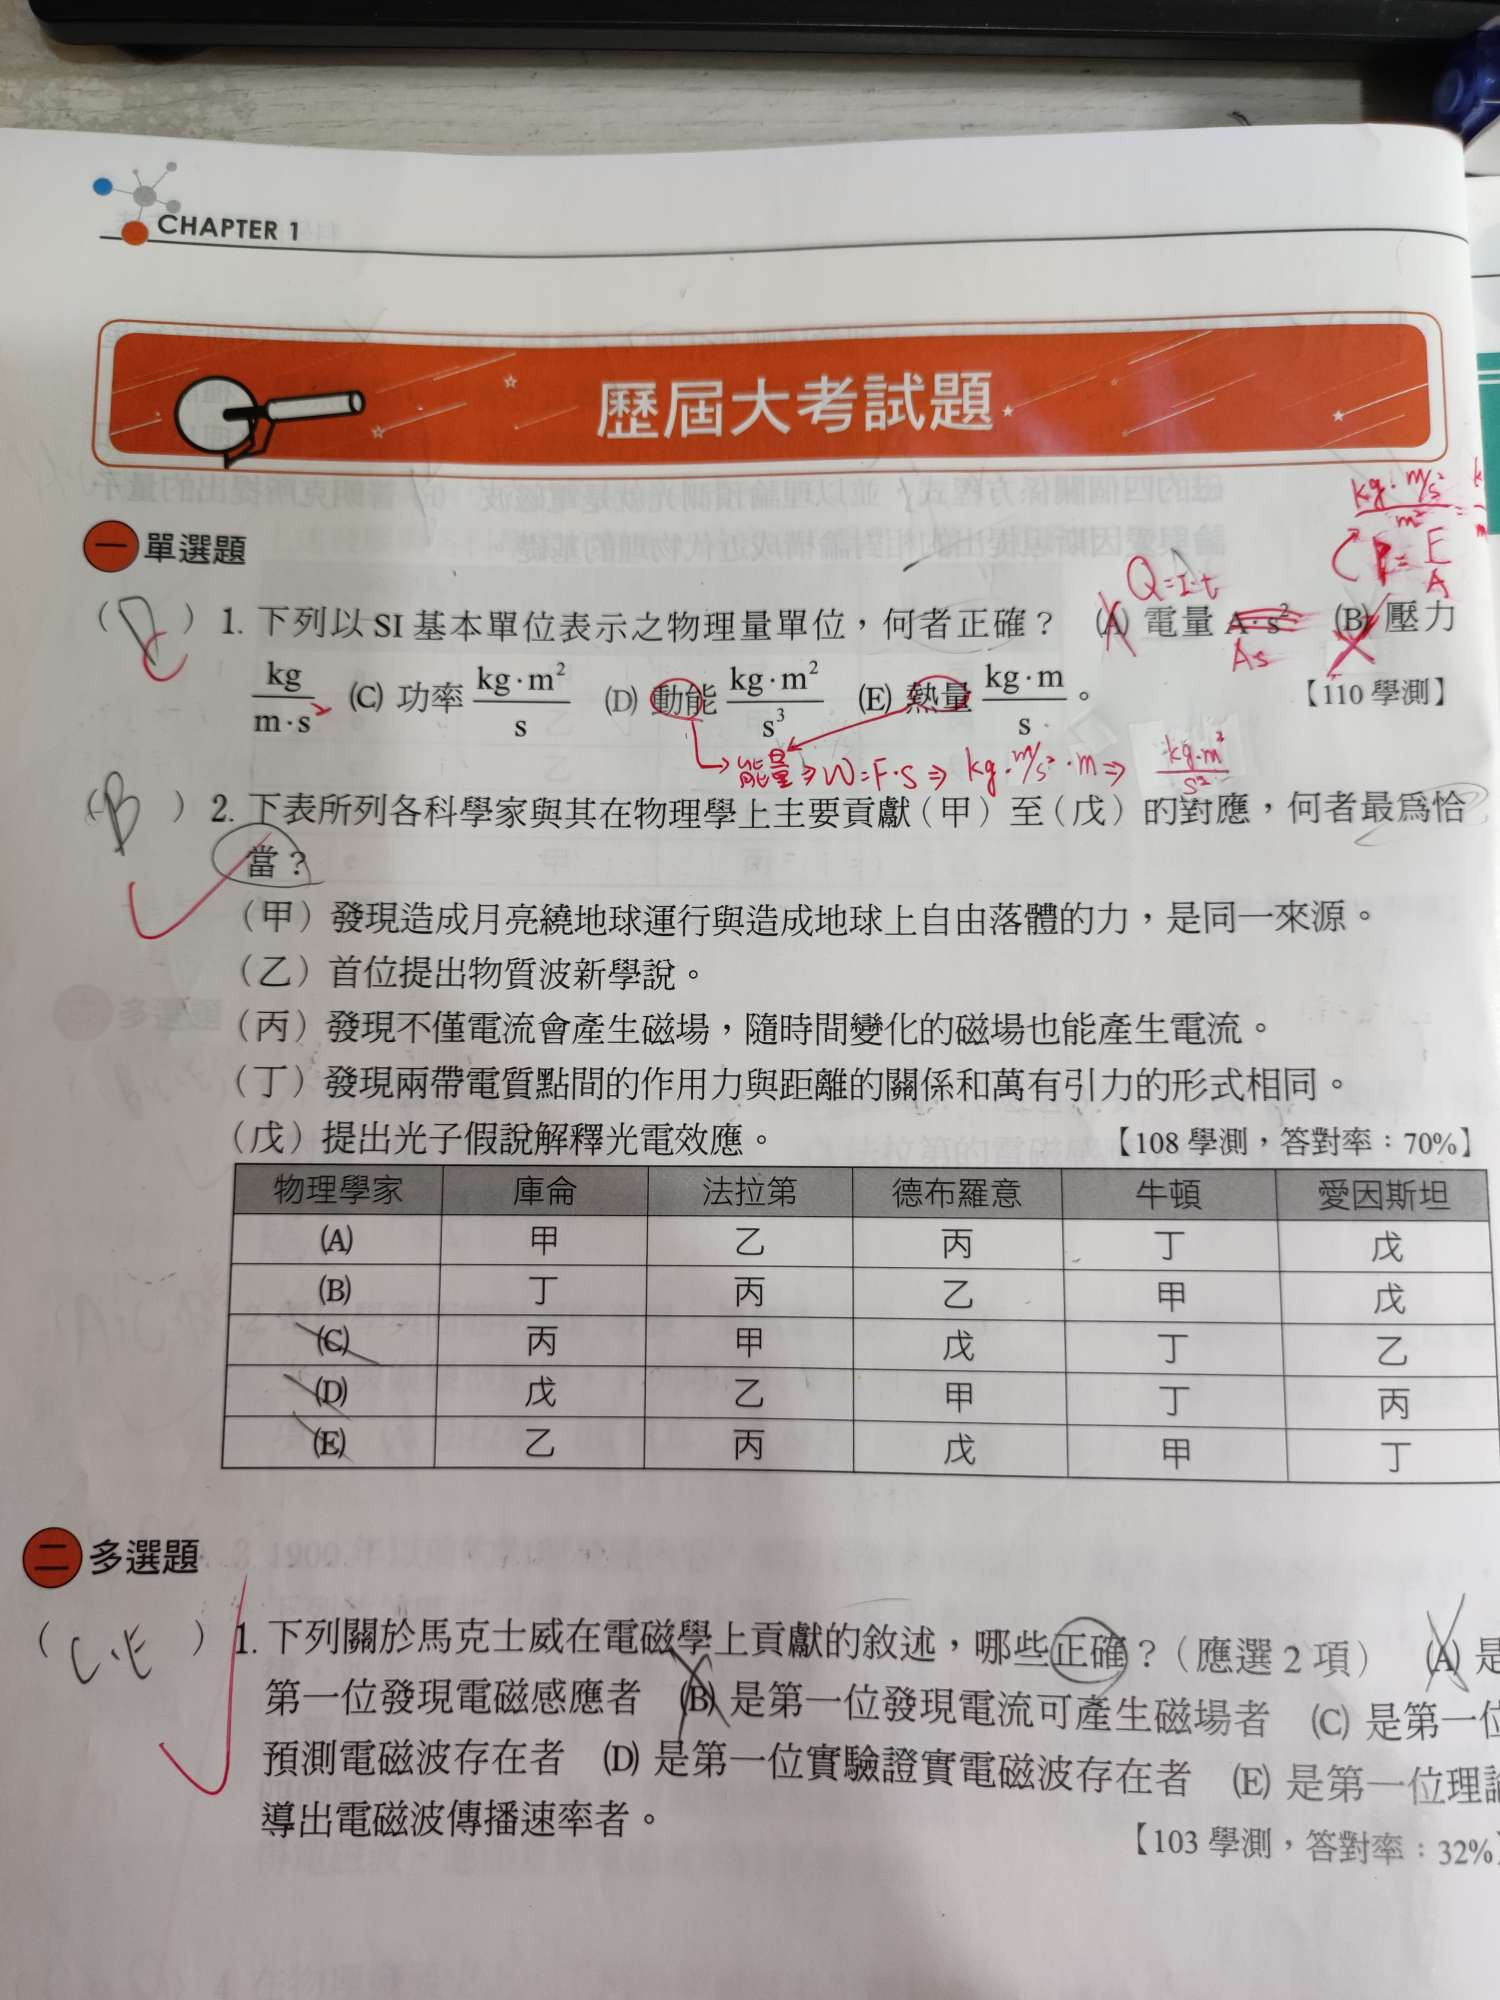 CHAPTER 1
歷屆大考試題
kg·m/s²
m²
P = F
A
一 單選題
Q=I·t
(D) 1. 下列以 SI 基本單位表示之物理量單位，何者正確？ (A) 電量 A·s² (B) 壓力
C
As
kg/m·s (C) 功率 kg·m²/s (D) 動能 kg·m²/s³ (E) 熱量 kg·m/s。 【110 學測】
2
→能量⇒W=F·s⇒ kg·m/s²·m⇒ kg·m²/s²
(B) 2. 下表所列各科學家與其在物理學上主要貢獻（甲）至（戊）的對應，何者最為恰
當？
（甲）發現造成月亮繞地球運行與造成地球上自由落體的力，是同一來源。
（乙）首位提出物質波新學說。
（丙）發現不僅電流會產生磁場，隨時間變化的磁場也能產生電流。
（丁）發現兩帶電質點間的作用力與距離的關係和萬有引力的形式相同。
（戊）提出光子假說解釋光電效應。 【108 學測，答對率：70%】
物理學家 庫侖 法拉第 德布羅意 牛頓 愛因斯坦
(A) 甲 乙 丙 丁 戊
(B) 丁 丙 乙 甲 戊
(C) 丙 甲 戊 丁 乙
(D) 戊 乙 甲 丁 丙
(E) 乙 丙 戊 甲 丁
二 多選題
(C.E) 1. 下列關於馬克士威在電磁學上貢獻的敘述，哪些正確？（應選 2 項） (A) 是
第一位發現電磁感應者 (B) 是第一位發現電流可產生磁場者 (C) 是第一位
預測電磁波存在者 (D) 是第一位實驗證實電磁波存在者 (E) 是第一位理論
導出電磁波傳播速率者。
【103 學測，答對率：32%】